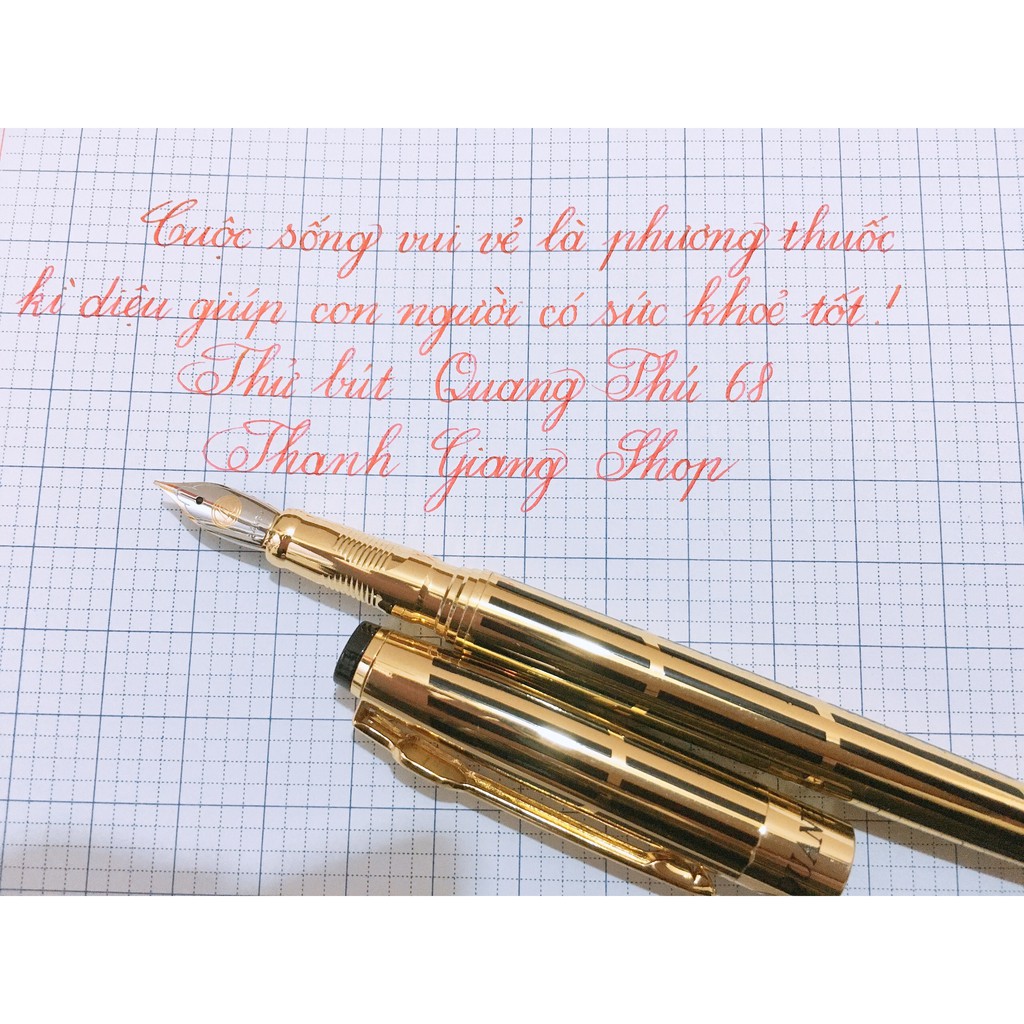 Cuộc sống vui vẻ là phương thuốc
kì diệu giúp con người có sức khoẻ tốt!
Thử bút Quang Phú 68
Thanh Giang Shop